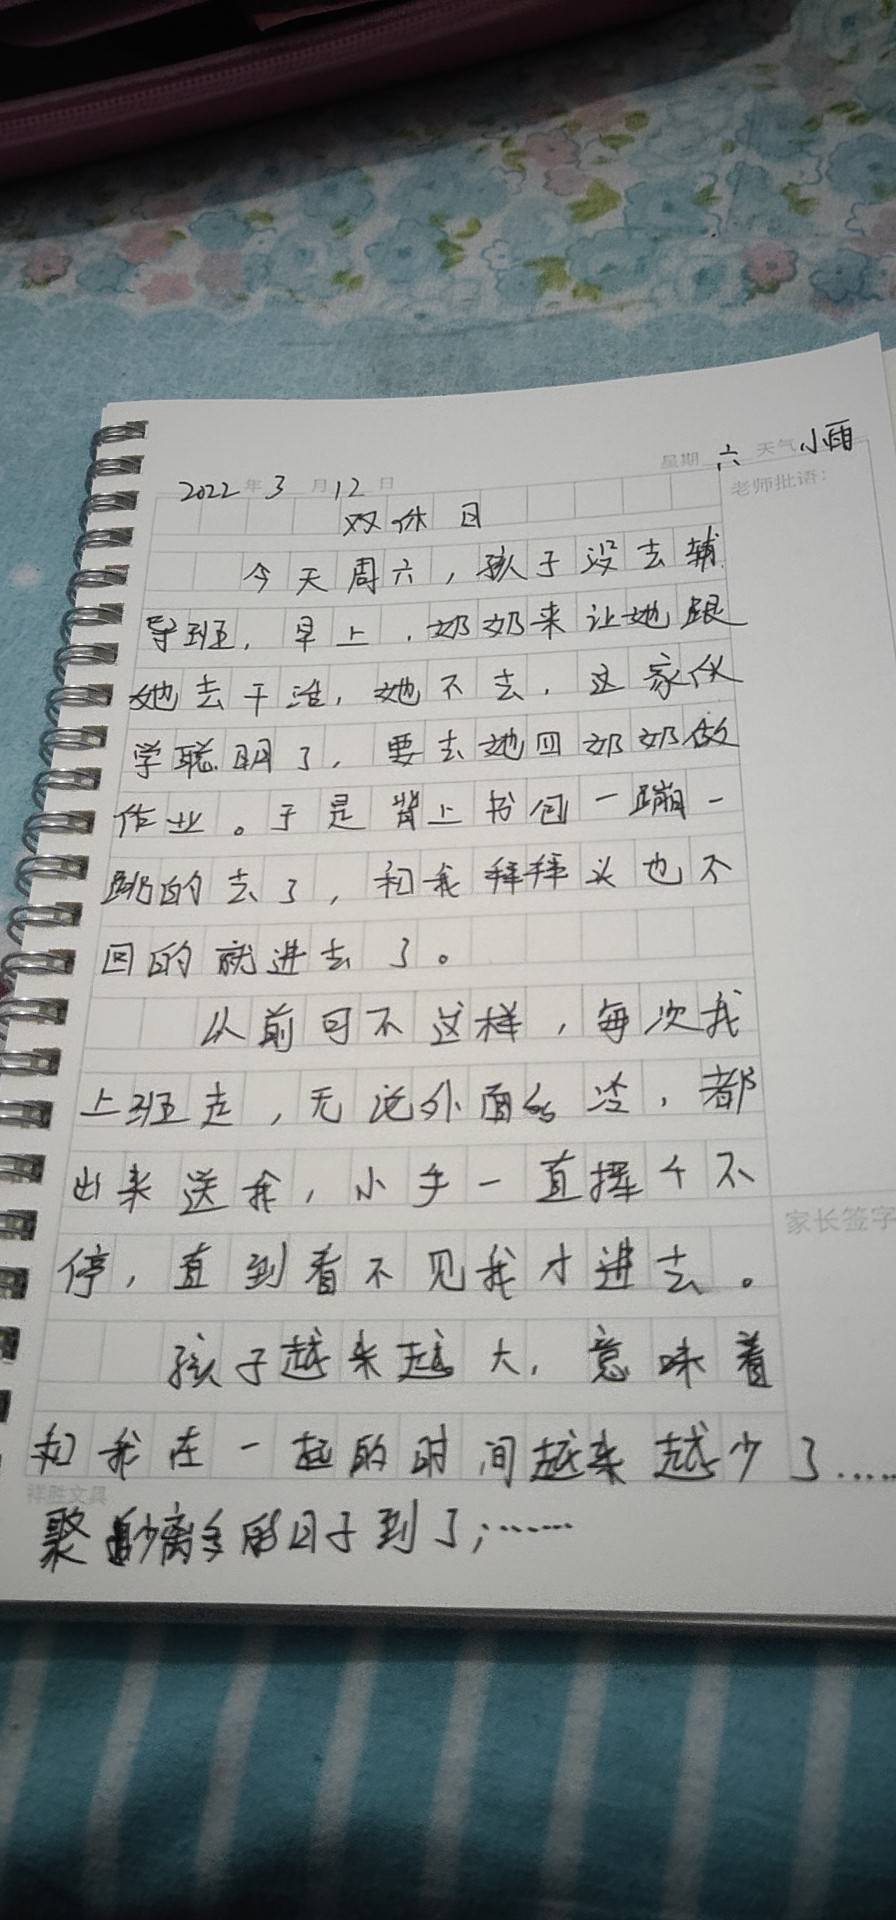 2022年3月12日 星期六 天气小雨
老师批语:
双休日
今天周六,孩子没去辅
导班,早上,奶奶来让她跟
她去干,她不去,这家伙
学聪明了,要去她四奶奶做
作业。于是背上书包一蹦一
跳的去了,和我拜拜头也不
回的就进去了。
从前可不这样,每次我
上班走,无论外面多冷,都
出来送我,小手一直挥个不
停,直到看不见我才进去。
家长签字
孩子越来越大,意味着
和我在一起的时间越来越少了……
祥胜文具
聚少离多的日子到了,……